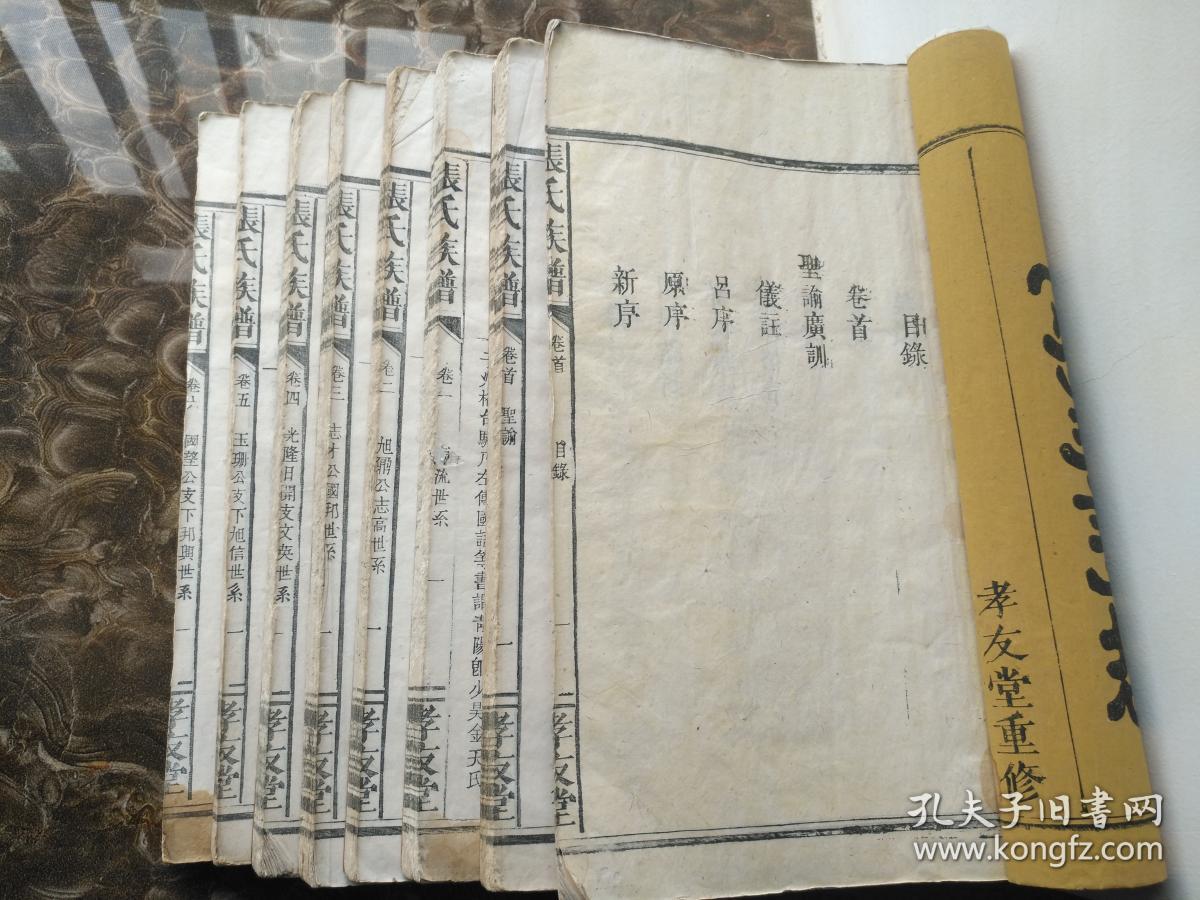 孝友堂重修
目錄
卷首
聖諭廣訓
儀註
呂序
原序
新序
張氏族譜 卷首 目錄 一 孝友堂
張氏族譜 卷首 聖諭 一 孝友堂
台駘乃左傳國語等書謂青陽即少昊金天氏
張氏族譜 卷一 流世系 一 孝友堂
張氏族譜 卷二 旭鼐公志高世系 一 孝友堂
張氏族譜 卷三 志才公國邦世系 一 孝友堂
張氏族譜 卷四 光隆日開支文英世系 一 孝友堂
張氏族譜 卷五 玉珊公支下旭信世系 一 孝友堂
張氏族譜 卷六 國望公支下邦興世系 一 孝友堂
孔夫子旧书网
www.kongfz.com